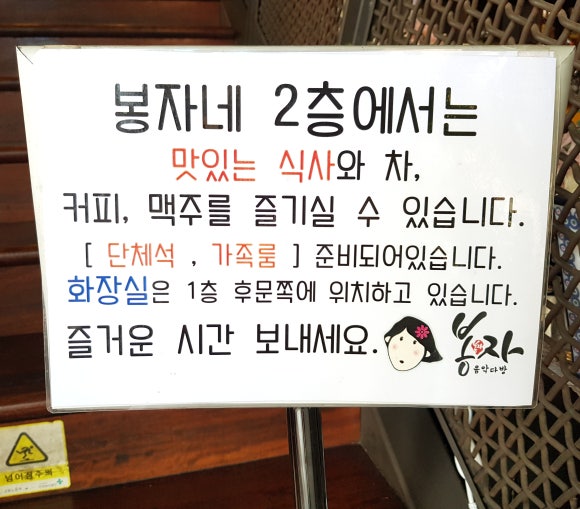 봉자네 2층에서는
맛있는 식사와 차,
커피, 맥주를 즐기실 수 있습니다.
[ 단체석 , 가족룸 ] 준비되어있습니다.
화장실은 1층 후문쪽에 위치하고 있습니다.
즐거운 시간 보내세요.
봉자
음악다방